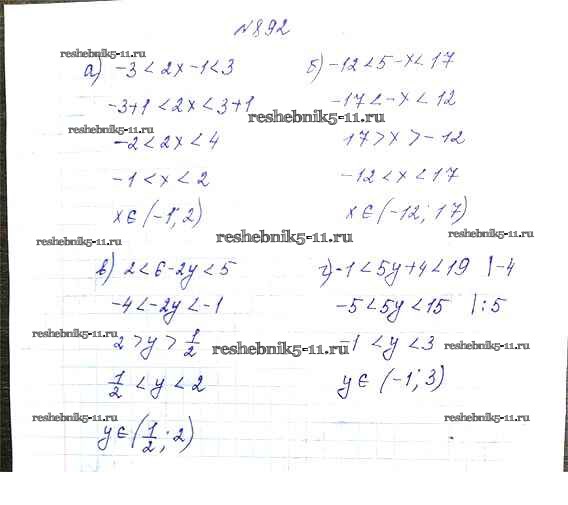 №892
reshebnik5-11.ru
reshebnik5-11.ru
а) -3 < 2x - 1 < 3
-3+1 < 2x < 3+1
reshebnik5-11.ru
reshebnik5-11.ru
-2 < 2x < 4
-1 < x < 2
x ∈ (-1; 2)
б) -12 < 5 - x < 17
-17 < -x < 12
17 > x > -12
-12 < x < 17
x ∈ (-12; 17)
reshebnik5-11.ru
reshebnik5-11.ru
reshebnik5-11.ru
в) 2 < 6 - 2y < 5
-4 < -2y < -1
2 > y > 1/2
1/2 < y < 2
y ∈ (1/2; 2)
г) -1 < 5y + 4 < 19 | -4
-5 < 5y < 15 | : 5
-1 < y < 3
y ∈ (-1; 3)
reshebnik5-11.ru
reshebnik5-11.ru
reshebnik5-11.ru
reshebnik5-11.ru
reshebnik5-11.ru